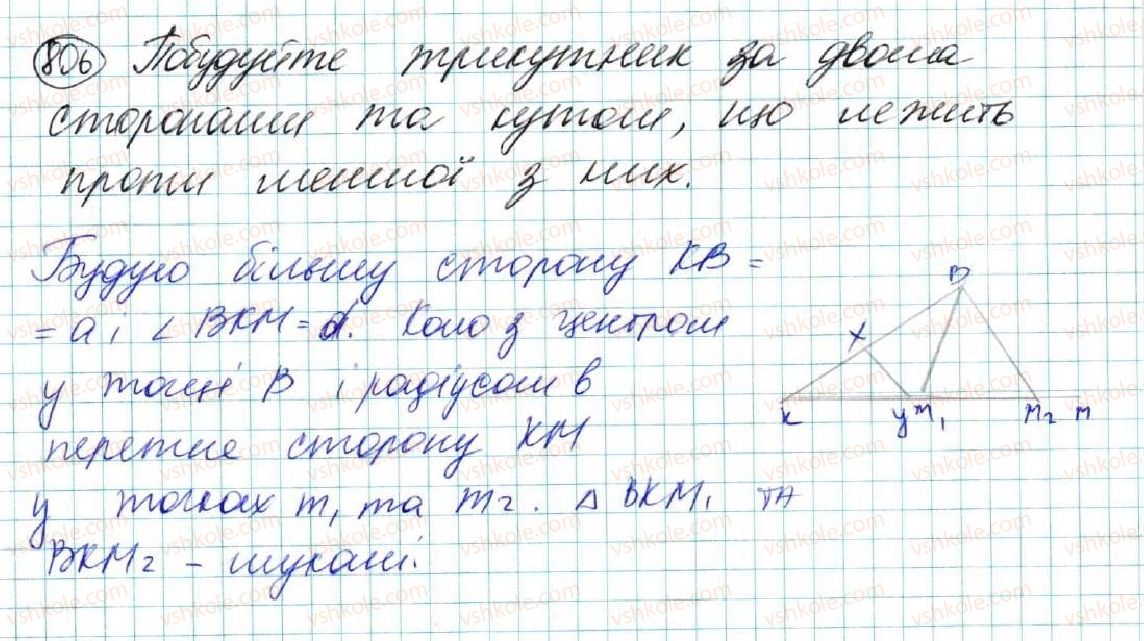 806 Побудуйте трикутник за двома
сторонами та кутом, що лежить
проти меншої з них.
Будую більшу сторону KB =
= a і ∠ BKM = α. Коло з центром
у точці B і радіусом b
перетне сторону KM
у точках m₁ та m₂. Δ BKM₁ та
BKM₂ – шукані.
B
X
K
У
m₁
M₂
M
vshkole.com